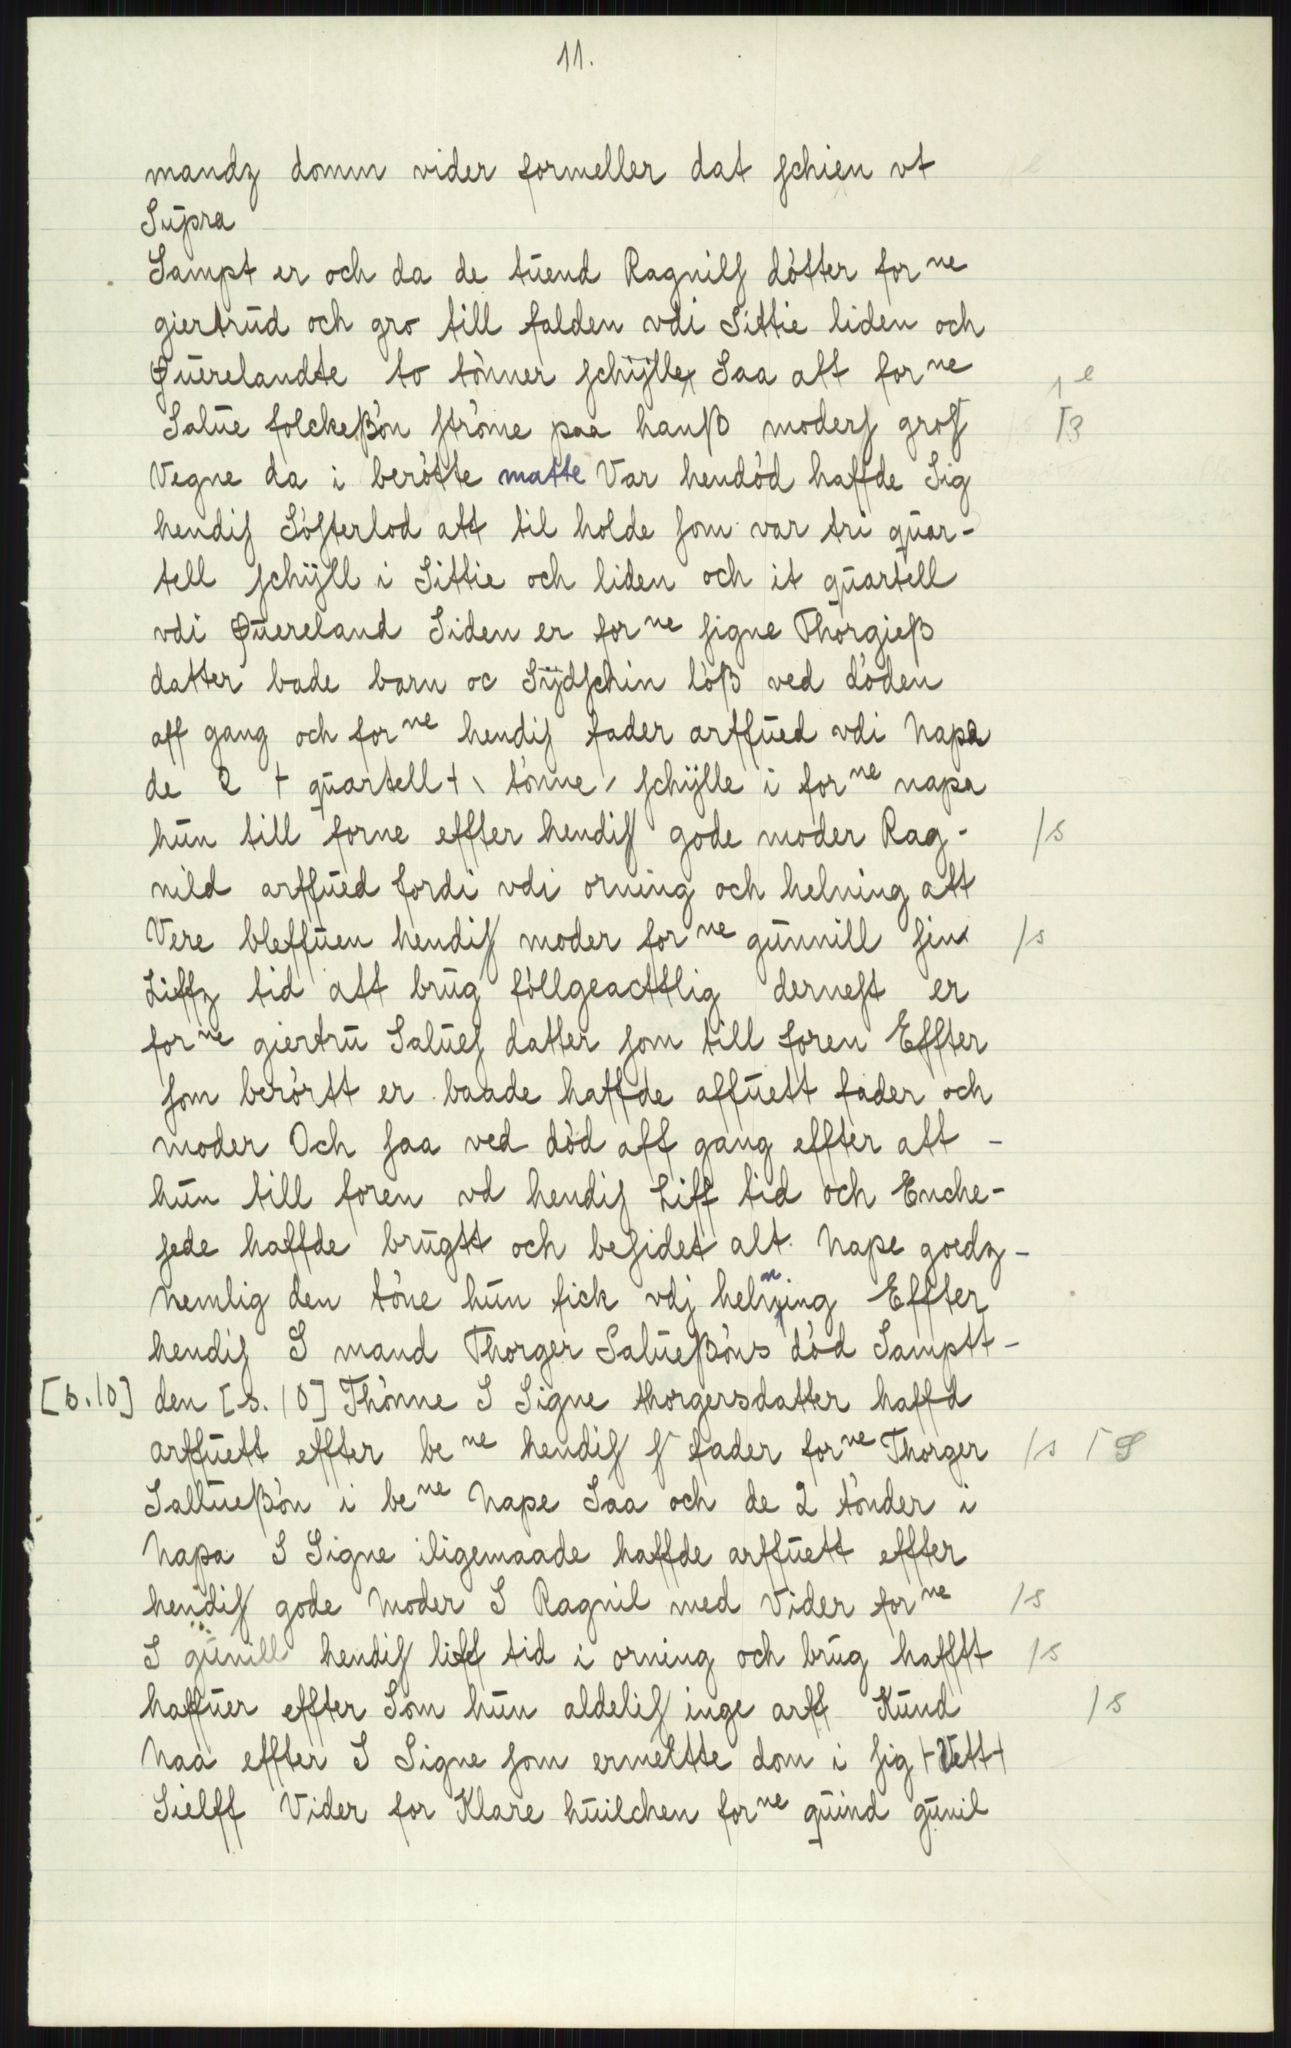 11.
mandz domm vider formeller dat schien vt
Supra
Sampt er och da de tuend Ragnils dòtter for ne
giertrud och gro till falden vdi Sittie liden och
Øuerelandte to tònner schÿlle Saa att for ne
Salue folckeßòn stròme paa hanß moders grof
Vegne da i beròtte matte Var hendòd haffde Sig
hendis Sòsterlod att til holde som var tri quar-
tell schÿll i Sittie och liden och it quartell
vdi Øuereland Siden er for ne signe Thorgieß
datter bade barn oc Sÿdschin lòß ved dòden
aff gang och for ne hendis fader arffued vdi Napa
de 2 + quartell + \ tònne / schÿlle i for ne napa
hun till forne effter hendis gode moder Rag-
nild arffued fordi vdi orning och helning att
Vere bleffuen hendis moder for ne gunnill sin
Liffz tid att brug fòllgeacttlig dernest er
for ne giertru Salues datter som till foren Effter
som beròrtt er baade haffde affuett fader och
moder Och saa ved dòd aff gang effter att -
hun till foren vd hendis Liff tid och Enche-
sede haffde brugtt och besidet alt Nape goedz -
Nemlig den tòne hun fick vdj helning Effter
n
hendis S mand Thorger Salueßòns dòd Samptt -
[s. 10] den [s. 10] Thònne S Signe thorgersdatter haffd
arffuett effter be ne hendis s fader for ne Thorger
Sallueßòn i be ne Nape Saa och de 2 tònder i
Napa S Signe iligemaade haffde arffuett effter
hendis gode Moder S Ragnil med Vider for ne
S gunill hendis liff tid i orning och brug hafftt
haffuer effter Som hun aldelis inge arff Kund
Naa effter S Signe som ermeltte dom i sig + Vett +
Sielff Vider for Klare huilchen for ne quind gunil
1 e
⌈3
/s
/s
/s ⌈S
/s
/s
/s